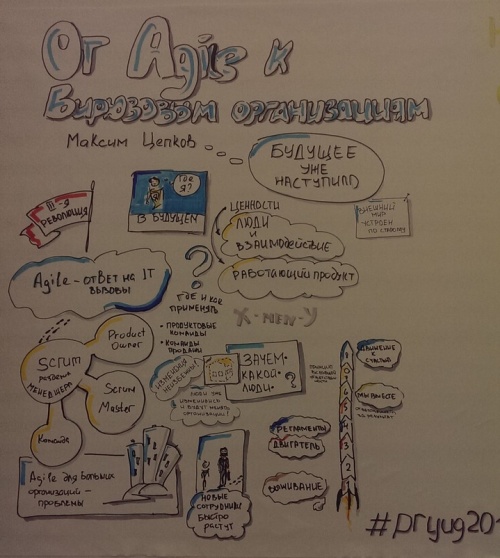 От Agile к
Бирюзовым организациям
Максим Цепков
БУДУЩЕЕ
УЖЕ
НАСТУПИЛО
3-Я
РЕВОЛЮЦИЯ
ГДЕ
Я?
В БУДУЩЕМ
ЦЕННОСТИ
ЛЮДИ
И
ВЗАИМОДЕЙСТВИЕ
РАБОТАЮЩИЙ ПРОДУКТ
ВНЕШНИЙ
МИР
УСТРОЕН
ПО-СТАРОМУ
Agile - ответ на IT
ВЫЗОВЫ
?
ГДЕ И КАК
ПРИМЕНЯТЬ
• ПРОДУКТОВЫЕ
КОМАНДЫ
• КОМАНДЫ
ПРОДАЖ
X-MEN-Y
Product
Owner
Scrum
МЕНЕДЖЕРА
Scrum
Master
Команда
ИЗМЕНЕНИЯ
НЕИЗБЕЖНЫ
ЗАЧЕМ-
КАКОЙ-
ЛЮДИ-
?
ЛЮДИ УЖЕ
ИЗМЕНИЛИСЬ
И БУДУТ МЕНЯТЬ
ОРГАНИЗАЦИИ!
Agile для больших
организаций -
проблемы
НОВЫЕ
СОТРУДНИКИ
БЫСТРО
РАСТУТ
К
СЧАСТЬЮ
МЫ ВМЕСТЕ
РЕГЛАМЕНТЫ
ДВИГАТЕЛЬ
ВЫЖИВАНИЕ
#pryug20